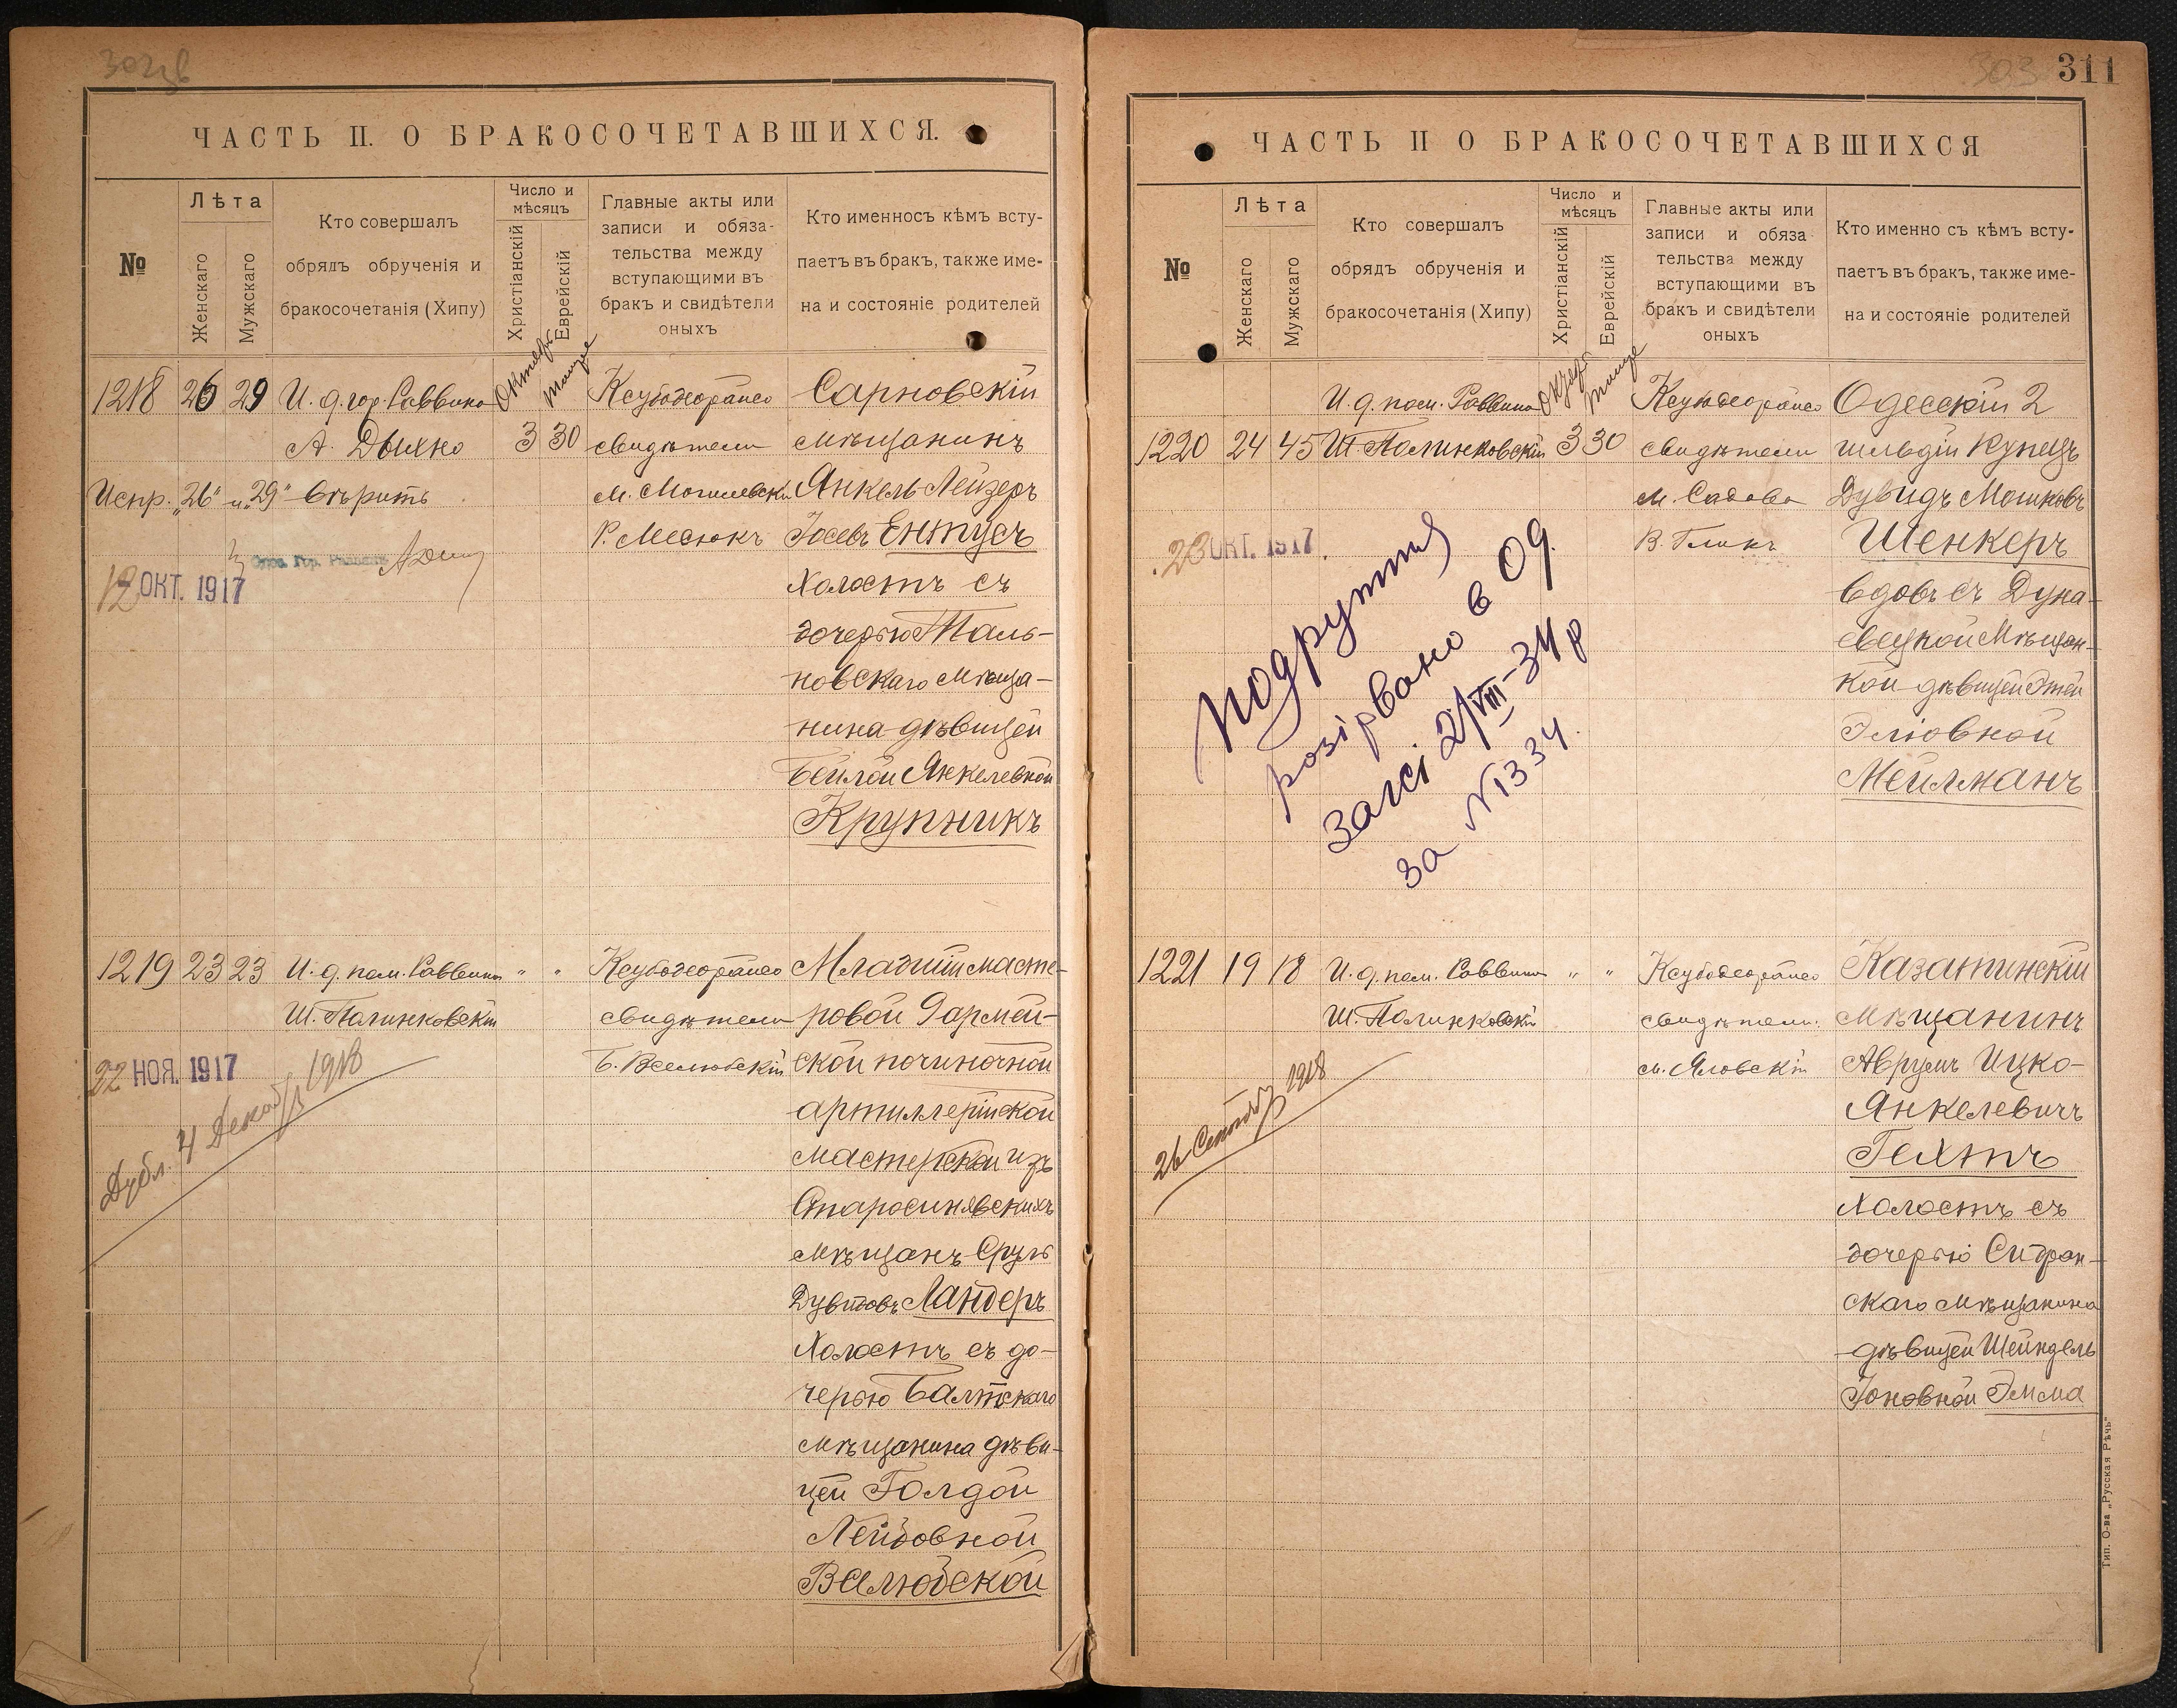 ЧАСТЬ II. О БРАКОСОЧЕТАВШИХСЯ.
№
Лѣта
Женскаго
Мужскаго
Кто совершалъ
обрядъ обрученія и
бракосочетанія (Хипу)
Число и
мѣсяцъ
Христіанскій
Еврейскій
Главные акты или
записи и обяза-
тельства между
вступающими въ
бракъ и свидѣтели
оныхъ
Кто именносъ кѣмъ всту-
паетъ въ бракъ, также име-
на и состояніе родителей
1218 26 29 И. д. гор. Раввина
А. Дыхно
Октябрь
Тишре
3 30
свидѣтели
М. Могилевски
Сарновскій
мѣщанинъ
Янкель Лейзеръ
Іосевъ Ентусъ
Холостъ съ
дочерью Таль-
новскаго мѣща-
нина дѣвицей
Бейлой Янкелевной
Крупникъ
Испр. „26“ и „29“ вѣрить
12 ОКТ. 1917
1219 23 23 И. д. пом. Раввина " "
Ш. Полинковскій
свидѣтели
Младшій масте-
ровой 9 армей-
ской починочной
артиллерійской
мастерской изъ
Старосинявскихъ
мѣщанъ Сруль
Дувидовъ Ландеръ
Холостъ съ до-
черью Балтскаго
мѣщанина дѣви-
цей Голдой
Лейбовной
22 НОЯ. 1917
Дубл. 4 Декабр 1918
311
ЧАСТЬ II О БРАКОСОЧЕТАВШИХСЯ
№
Лѣта
Женскаго
Мужскаго
Кто совершалъ
обрядъ обрученія и
бракосочетанія (Хипу)
Число и
мѣсяцъ
Христіанскій
Еврейскій
Главные акты или
записи и обяза
тельства между
вступающими въ
бракъ и свидѣтели
оныхъ
Кто именно съ кѣмъ всту-
паетъ въ бракъ, также име-
на и состояніе родителей
И. д. пом. Раввина
1220 24 45 Ш. Полинковскій
Тишре
3 30
свидѣтели
М. Садова
В. Гликъ
Одесскій 2
гильдіи Купецъ
Дувидъ Мошковъ
Шенкеръ
вдовъ съ Дуна-
евецкой Мѣщан-
кой дѣвицей Этей
Эліовной
Мейлманъ
23 ОКТ. 1917
подружжя
розірвано в Од.
Загсі 2/VIII-34 р
за №1334.
1221 19 18 И. д. пом. Раввина " "
Ш. Полинковскій
свидѣтели
М. Яловскій
Казатинскій
Мѣщанинъ
Аврумъ Ицко-
Янкелевичъ
Гехтъ
Холостъ съ
дочерью
скаго мѣщанина
дѣвицей Шейндель
Іоновной Эмма
26 Сентября 1918
Тип. О-ва „Русская Рѣчь“